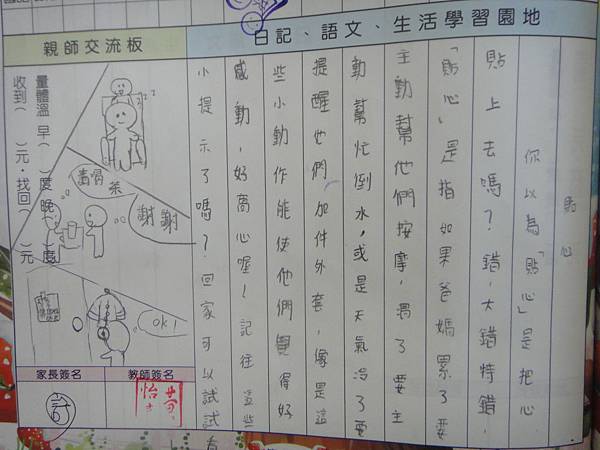 日記、語文、生活學習園地
貼心
你以為「貼心」是把心
貼上去嗎？錯，大錯特錯，
「貼心」是指如果爸媽累了要
主動幫他們按摩，渴了要主
動幫忙倒水，或是天氣冷了要
提醒他們加件外套，像是這
些小動作能使他們覺得好
感動，好高心喔！記往這些
小提示了嗎？回家可以試試看
親師交流板
量體溫 早（ ）度晚（ ）度
收到（ ）元，找回（ ）元
zzz
茶
謝謝
OK!
家長簽名
教師簽名
許